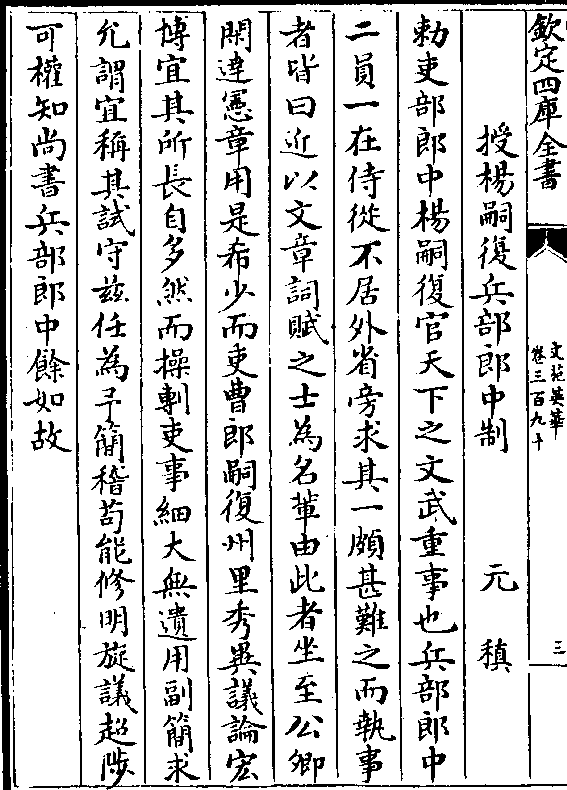 欽定四庫全書
文苑英華
卷三百九十
三
授楊嗣復兵部郎中制 元稹
勅吏部郎中楊嗣復官天下之文武重事也兵部郎中
二員一在侍從不居外省旁求其一頗甚難之而執事
者皆曰近以文章詞賦之士為名輩由此者坐至公卿
閑達憲章用是希少而吏曹郎嗣復州里秀異議論宏
博宜其所長自多然而操剸吏事細大無遺用副簡求
允謂宜稱其試守兹任為予簡稽茍能修明旋議超陟
可權知尚書兵部郎中餘如故